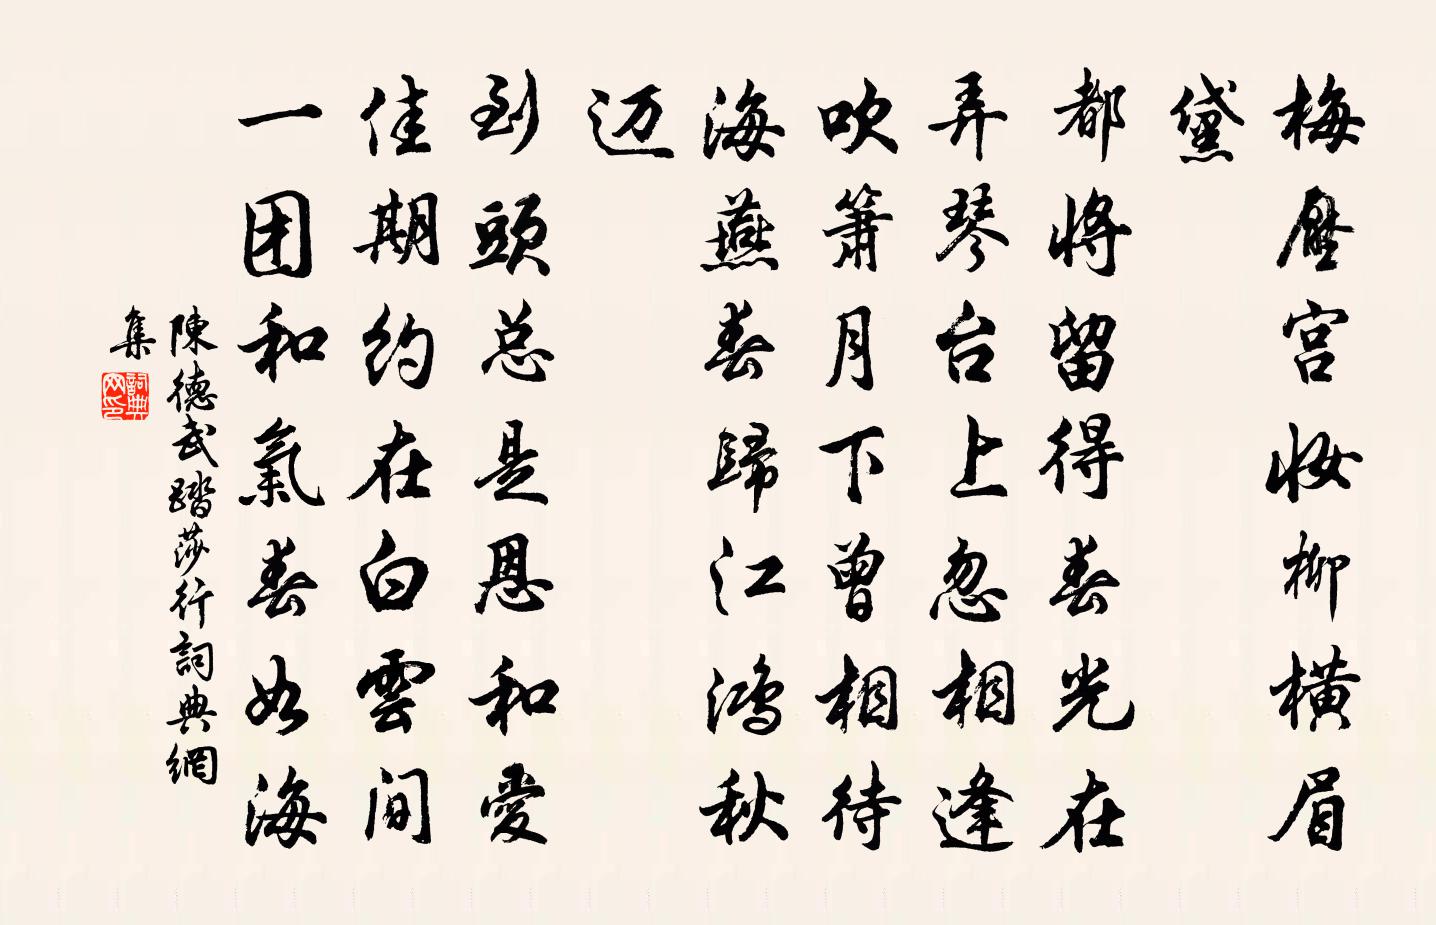 梅壓宫妆柳橫眉
黛
都将留得春光在
弄琴台上忽相逢
吹箫月下曾相待
海燕春歸江鸿秋
迈
到頭总是恩和愛
佳期约在白雲间
一团和氣春如海
陳德武踏莎行詞典網
集
詞典
网印